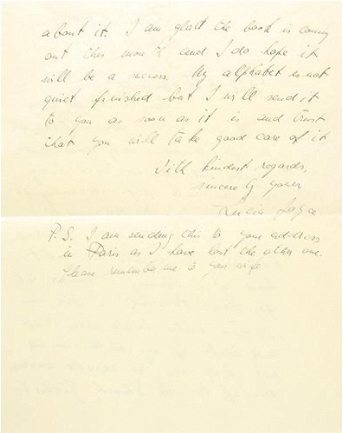 about it. I am glad the book is coming
out this month and I do hope it
will be a success. My alphabet is not
quiet finished but I will send it
to you as soon as it is and trust
that you will take good care of it
With kindest regards,
sincerely yours
Lucia Joyce
P.S. I am sending this to your address
in Paris as I have lost the other one.
Please remember me to your wife